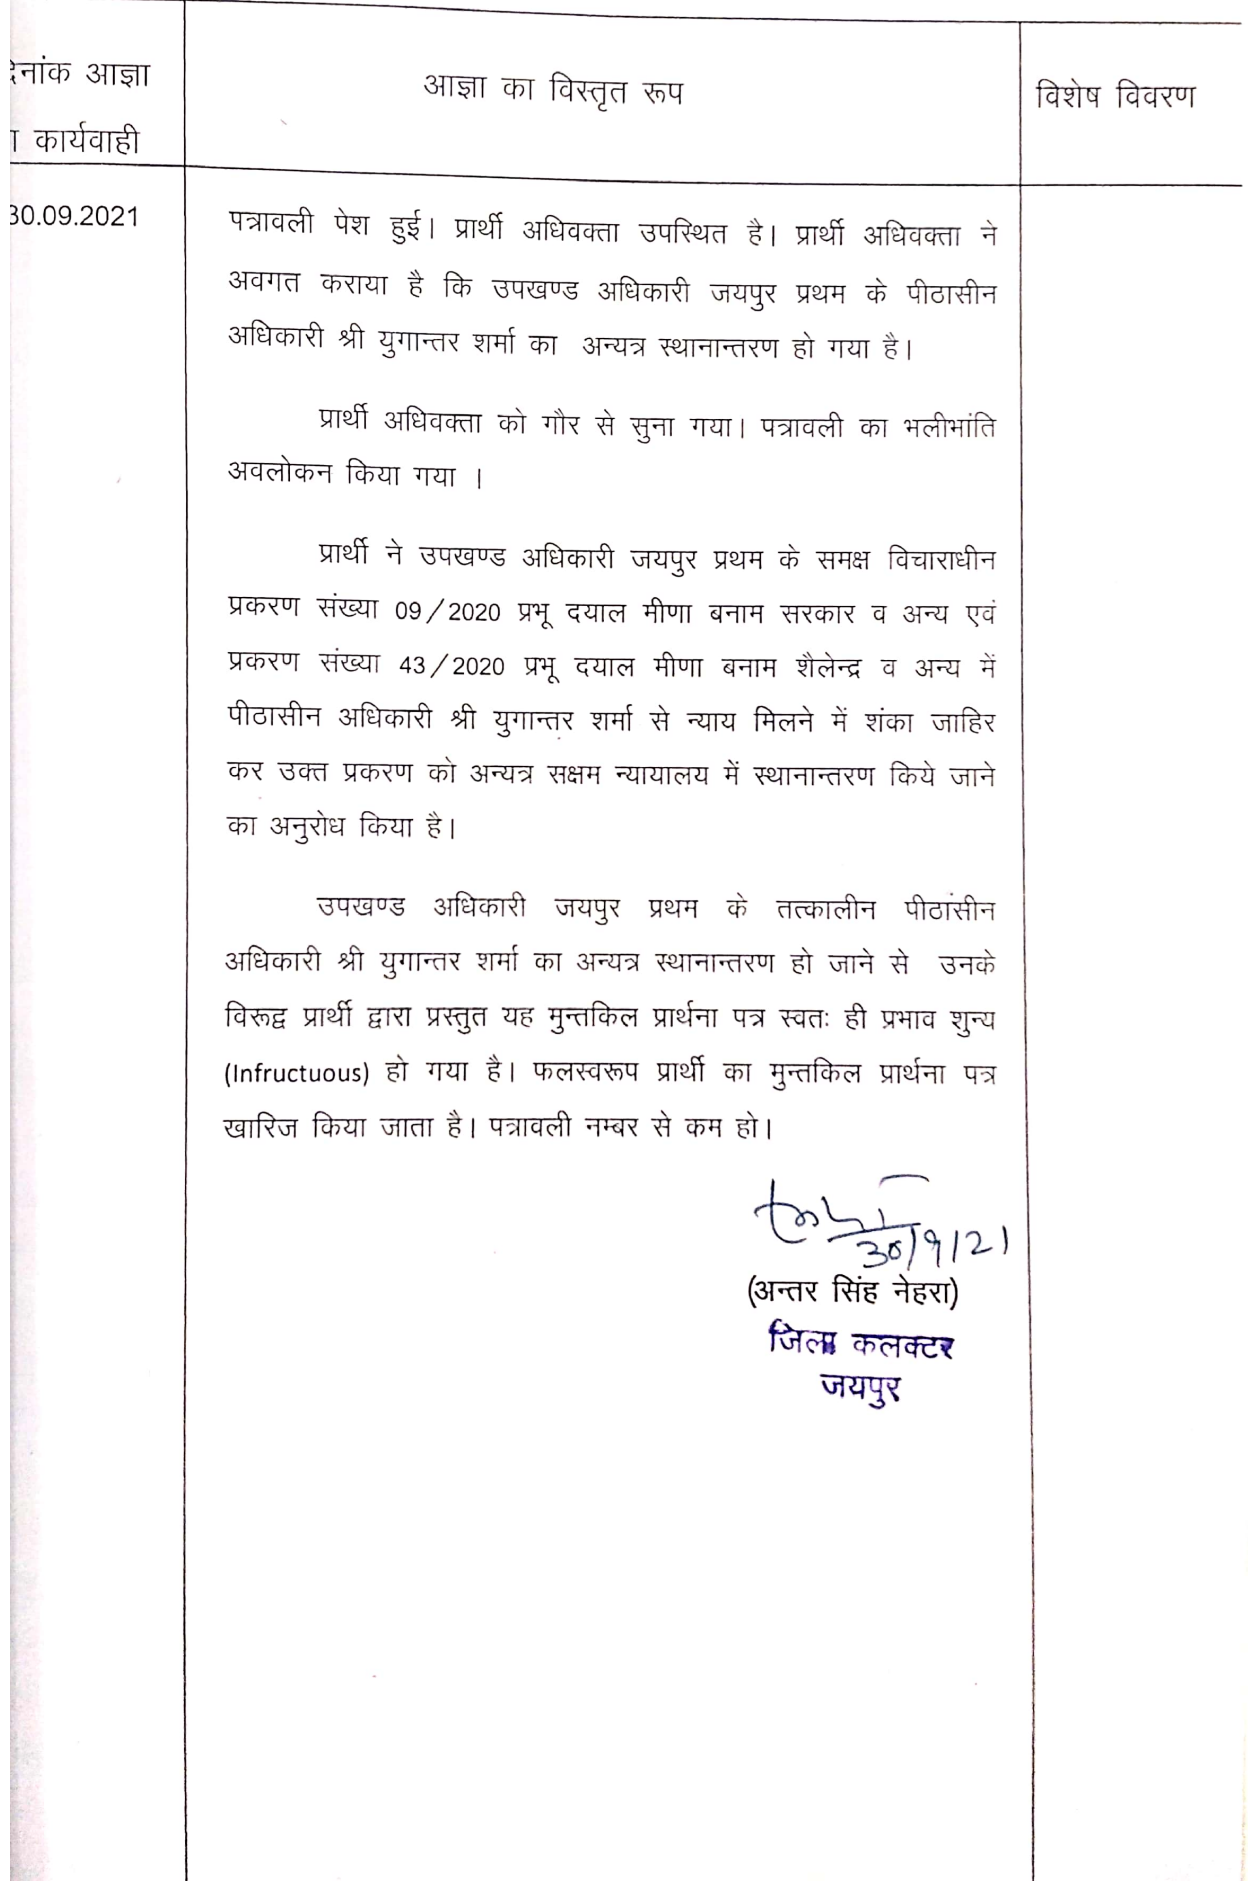 दिनांक आज्ञा
कार्यवाही
आज्ञा का विस्तृत रूप
विशेष विवरण
30.09.2021
पत्रावली पेश हुई। प्रार्थी अधिवक्ता उपस्थित है। प्रार्थी अधिवक्ता ने
अवगत कराया है कि उपखण्ड अधिकारी जयपुर प्रथम के पीठासीन
अधिकारी श्री युगान्तर शर्मा का अन्यत्र स्थानान्तरण हो गया है।
प्रार्थी अधिवक्ता को गौर से सुना गया। पत्रावली का भलीभांति
अवलोकन किया गया ।
प्रार्थी ने उपखण्ड अधिकारी जयपुर प्रथम के समक्ष विचाराधीन
प्रकरण संख्या 09/2020 प्रभू दयाल मीणा बनाम सरकार व अन्य एवं
प्रकरण संख्या 43/2020 प्रभू दयाल मीणा बनाम शैलेन्द्र व अन्य में
पीठासीन अधिकारी श्री युगान्तर शर्मा से न्याय मिलने में शंका जाहिर
कर उक्त प्रकरण को अन्यत्र सक्षम न्यायालय में स्थानान्तरण किये जाने
का अनुरोध किया है।
उपखण्ड अधिकारी जयपुर प्रथम के तत्कालीन पीठांसीन
अधिकारी श्री युगान्तर शर्मा का अन्यत्र स्थानान्तरण हो जाने से उनके
विरूद्व प्रार्थी द्वारा प्रस्तुत यह मुन्तकिल प्रार्थना पत्र स्वतः ही प्रभाव शुन्य
(Infructuous) हो गया है। फलस्वरूप प्रार्थी का मुन्तकिल प्रार्थना पत्र
खारिज किया जाता है। पत्रावली नम्बर से कम हो।
30/9/21
(अन्तर सिंह नेहरा)
जिला कलक्टर
जयपुर